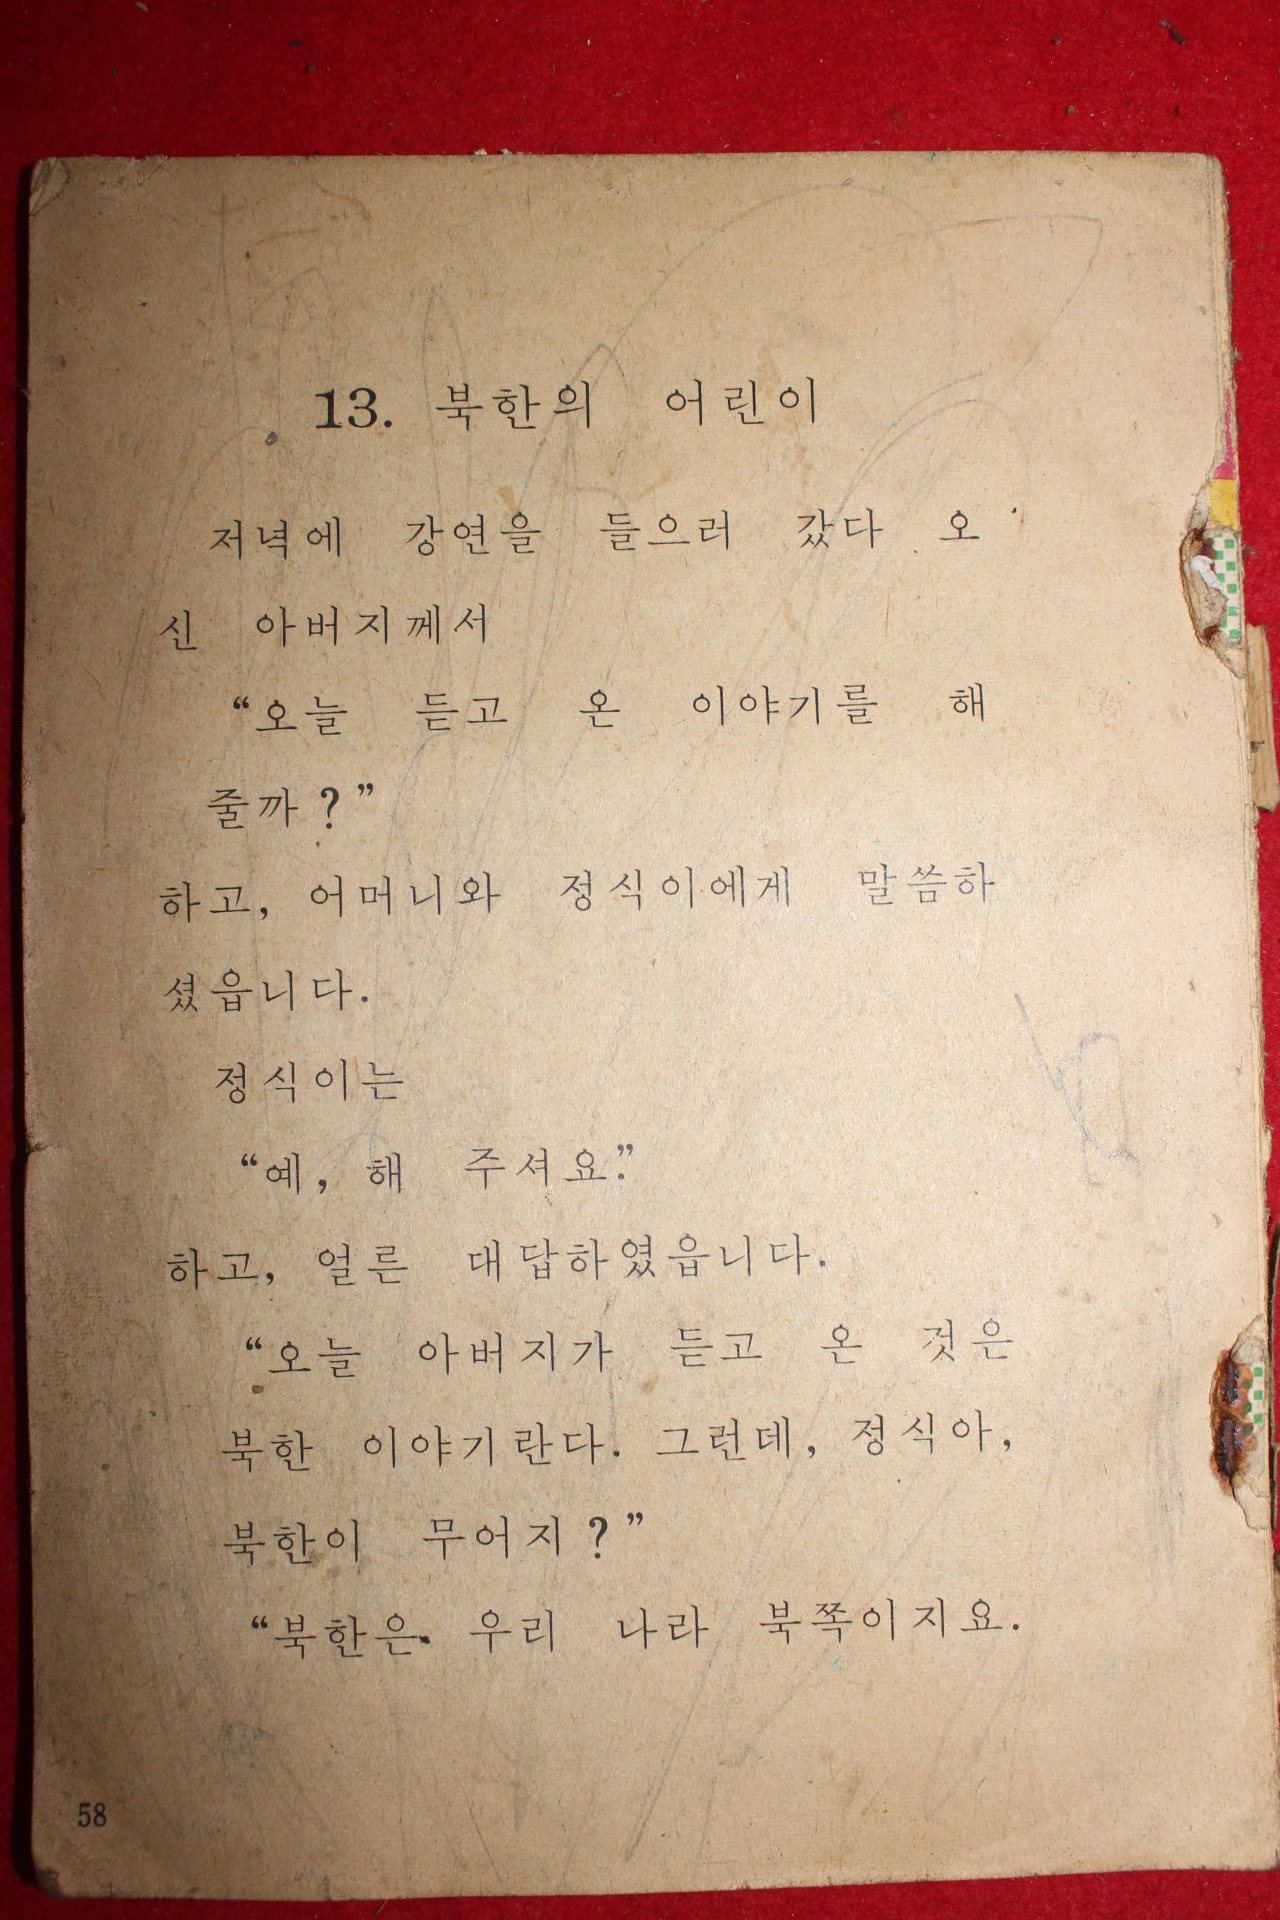 13. 북한의 어린이
저녁에 강연을 들으러 갔다 오
신 아버지께서
“오늘 듣고 온 이야기를 해
줄까?”
하고, 어머니와 정식이에게 말씀하
셨읍니다.
정식이는
“예, 해 주셔요.”
하고, 얼른 대답하였읍니다.
“오늘 아버지가 듣고 온 것은
북한 이야기란다. 그런데, 정식아,
북한이 무어지?”
“북한은 우리 나라 북쪽이지요.
58